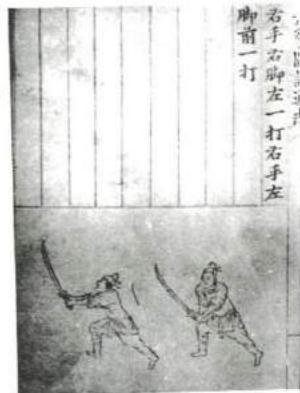 右手右脚左一打右手左
脚前一打